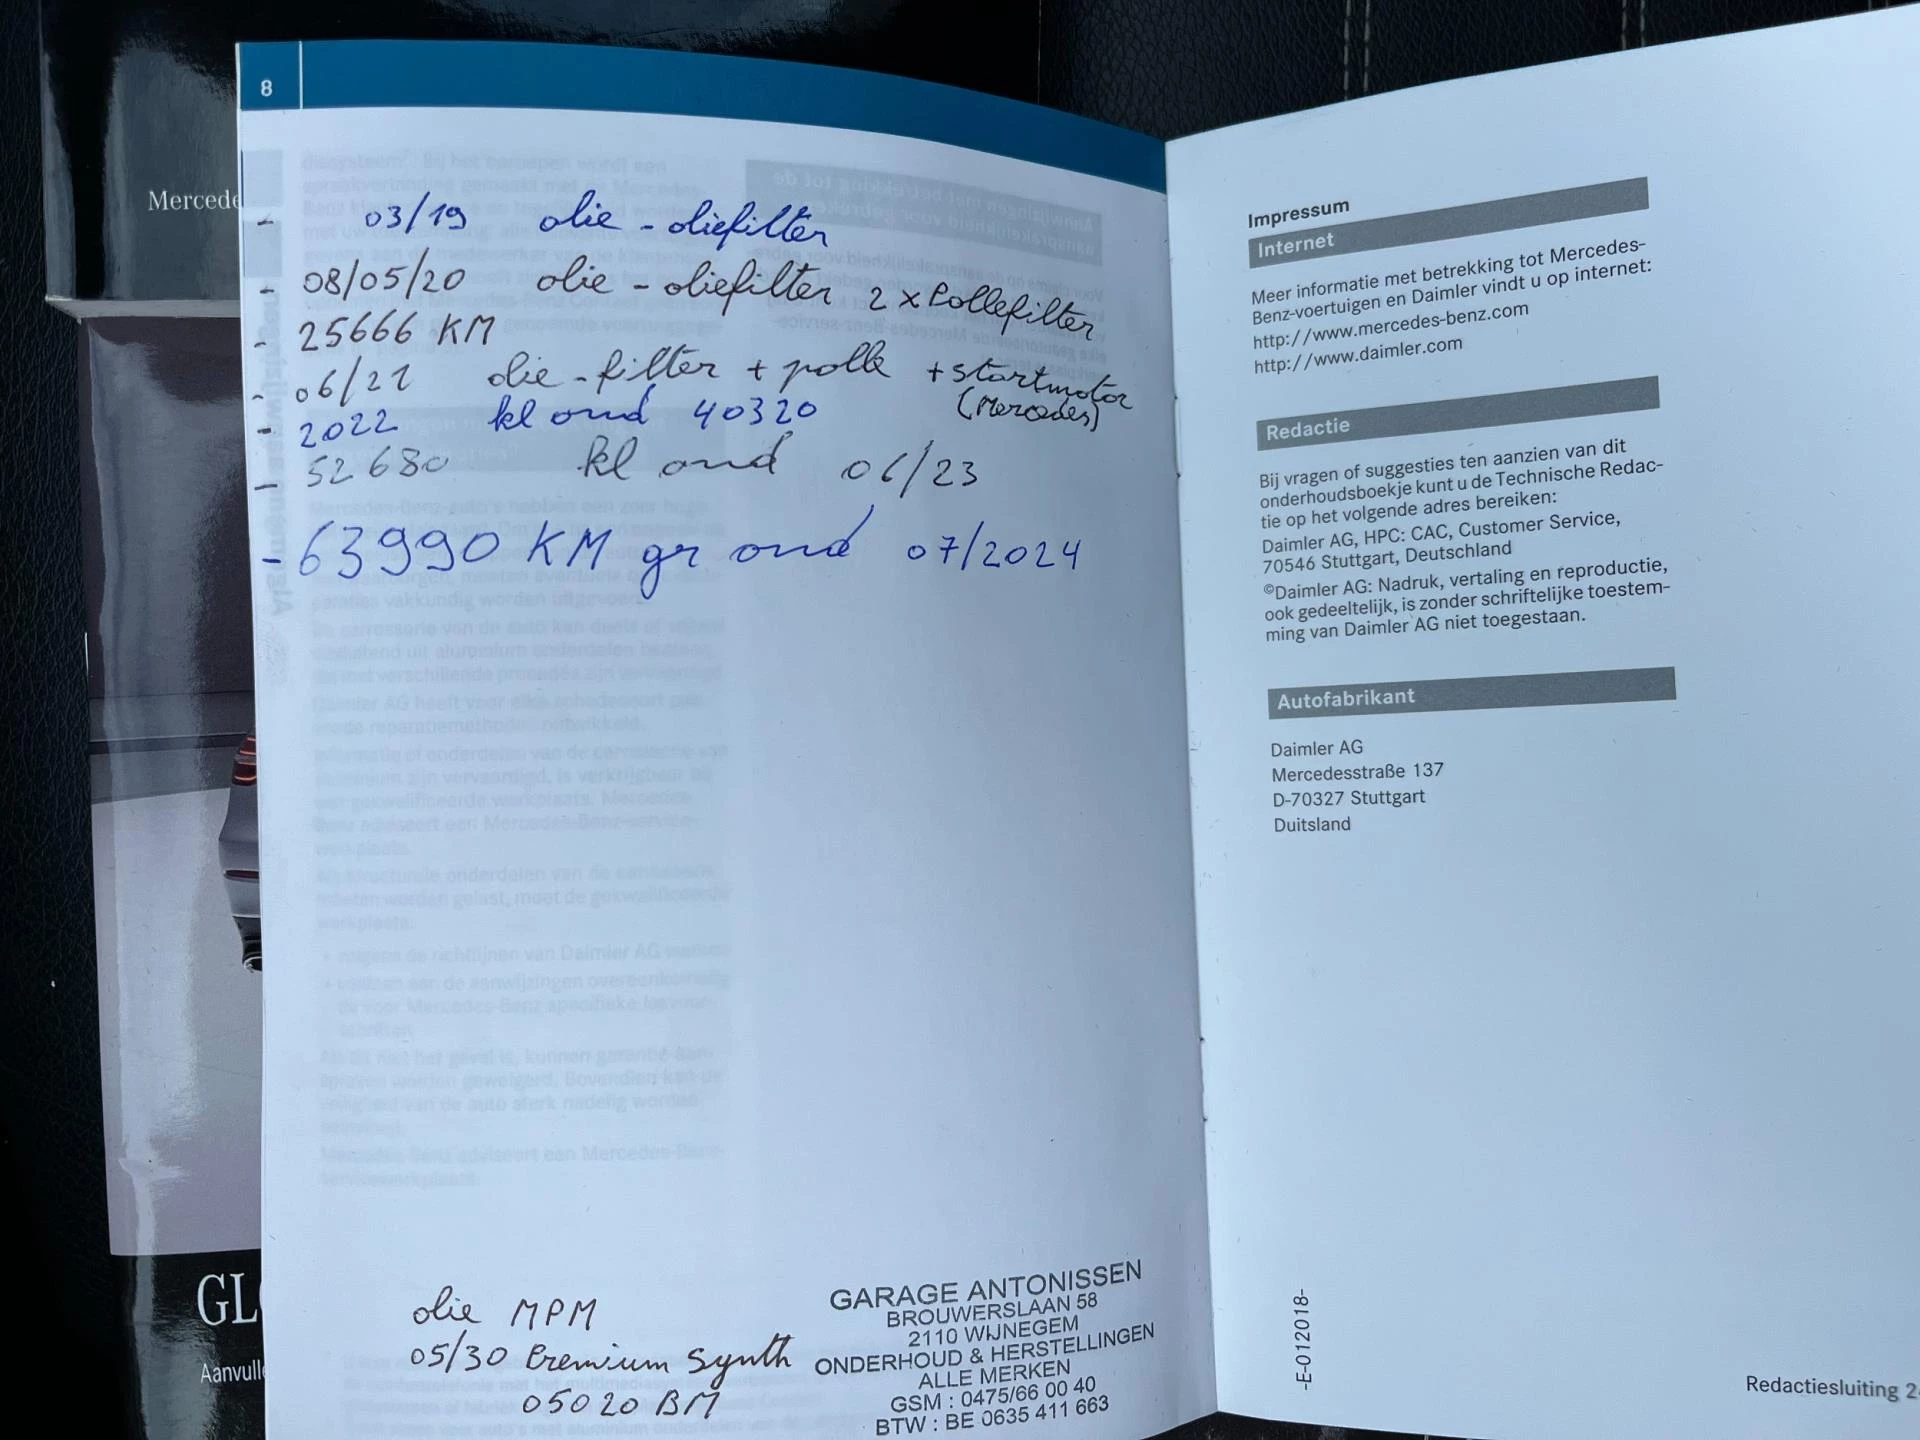 Mercede
8
- 03/19 olie - oliefilter
- 08/05/20 olie - oliefilter 2 x Pollefilter
- 25666 KM
- 06/21 olie - filter + polle + startmotor
(Mercedes)
- 2022 kl ond 40320
- 52680 kl ond 06/23
- 63990 KM gr ond 07/2024
olie MPM
05/30 Premium Synth
05020 BM
GARAGE ANTONISSEN
BROUWERSLAAN 58
2110 WIJNEGEM
ONDERHOUD & HERSTELLINGEN
ALLE MERKEN
GSM : 0475/66 00 40
BTW : BE 0635 411 663
GL
Aanvulle
Impressum
Internet
Meer informatie met betrekking tot Mercedes-
Benz-voertuigen en Daimler vindt u op internet:
http://www.mercedes-benz.com
http://www.daimler.com
Redactie
Bij vragen of suggesties ten aanzien van dit
onderhoudsboekje kunt u de Technische Redac-
tie op het volgende adres bereiken:
Daimler AG, HPC: CAC, Customer Service,
70546 Stuttgart, Deutschland
©Daimler AG: Nadruk, vertaling en reproductie,
ook gedeeltelijk, is zonder schriftelijke toestem-
ming van Daimler AG niet toegestaan.
Autofabrikant
Daimler AG
Mercedesstraße 137
D-70327 Stuttgart
Duitsland
-E-012018-
Redactiesluiting 2